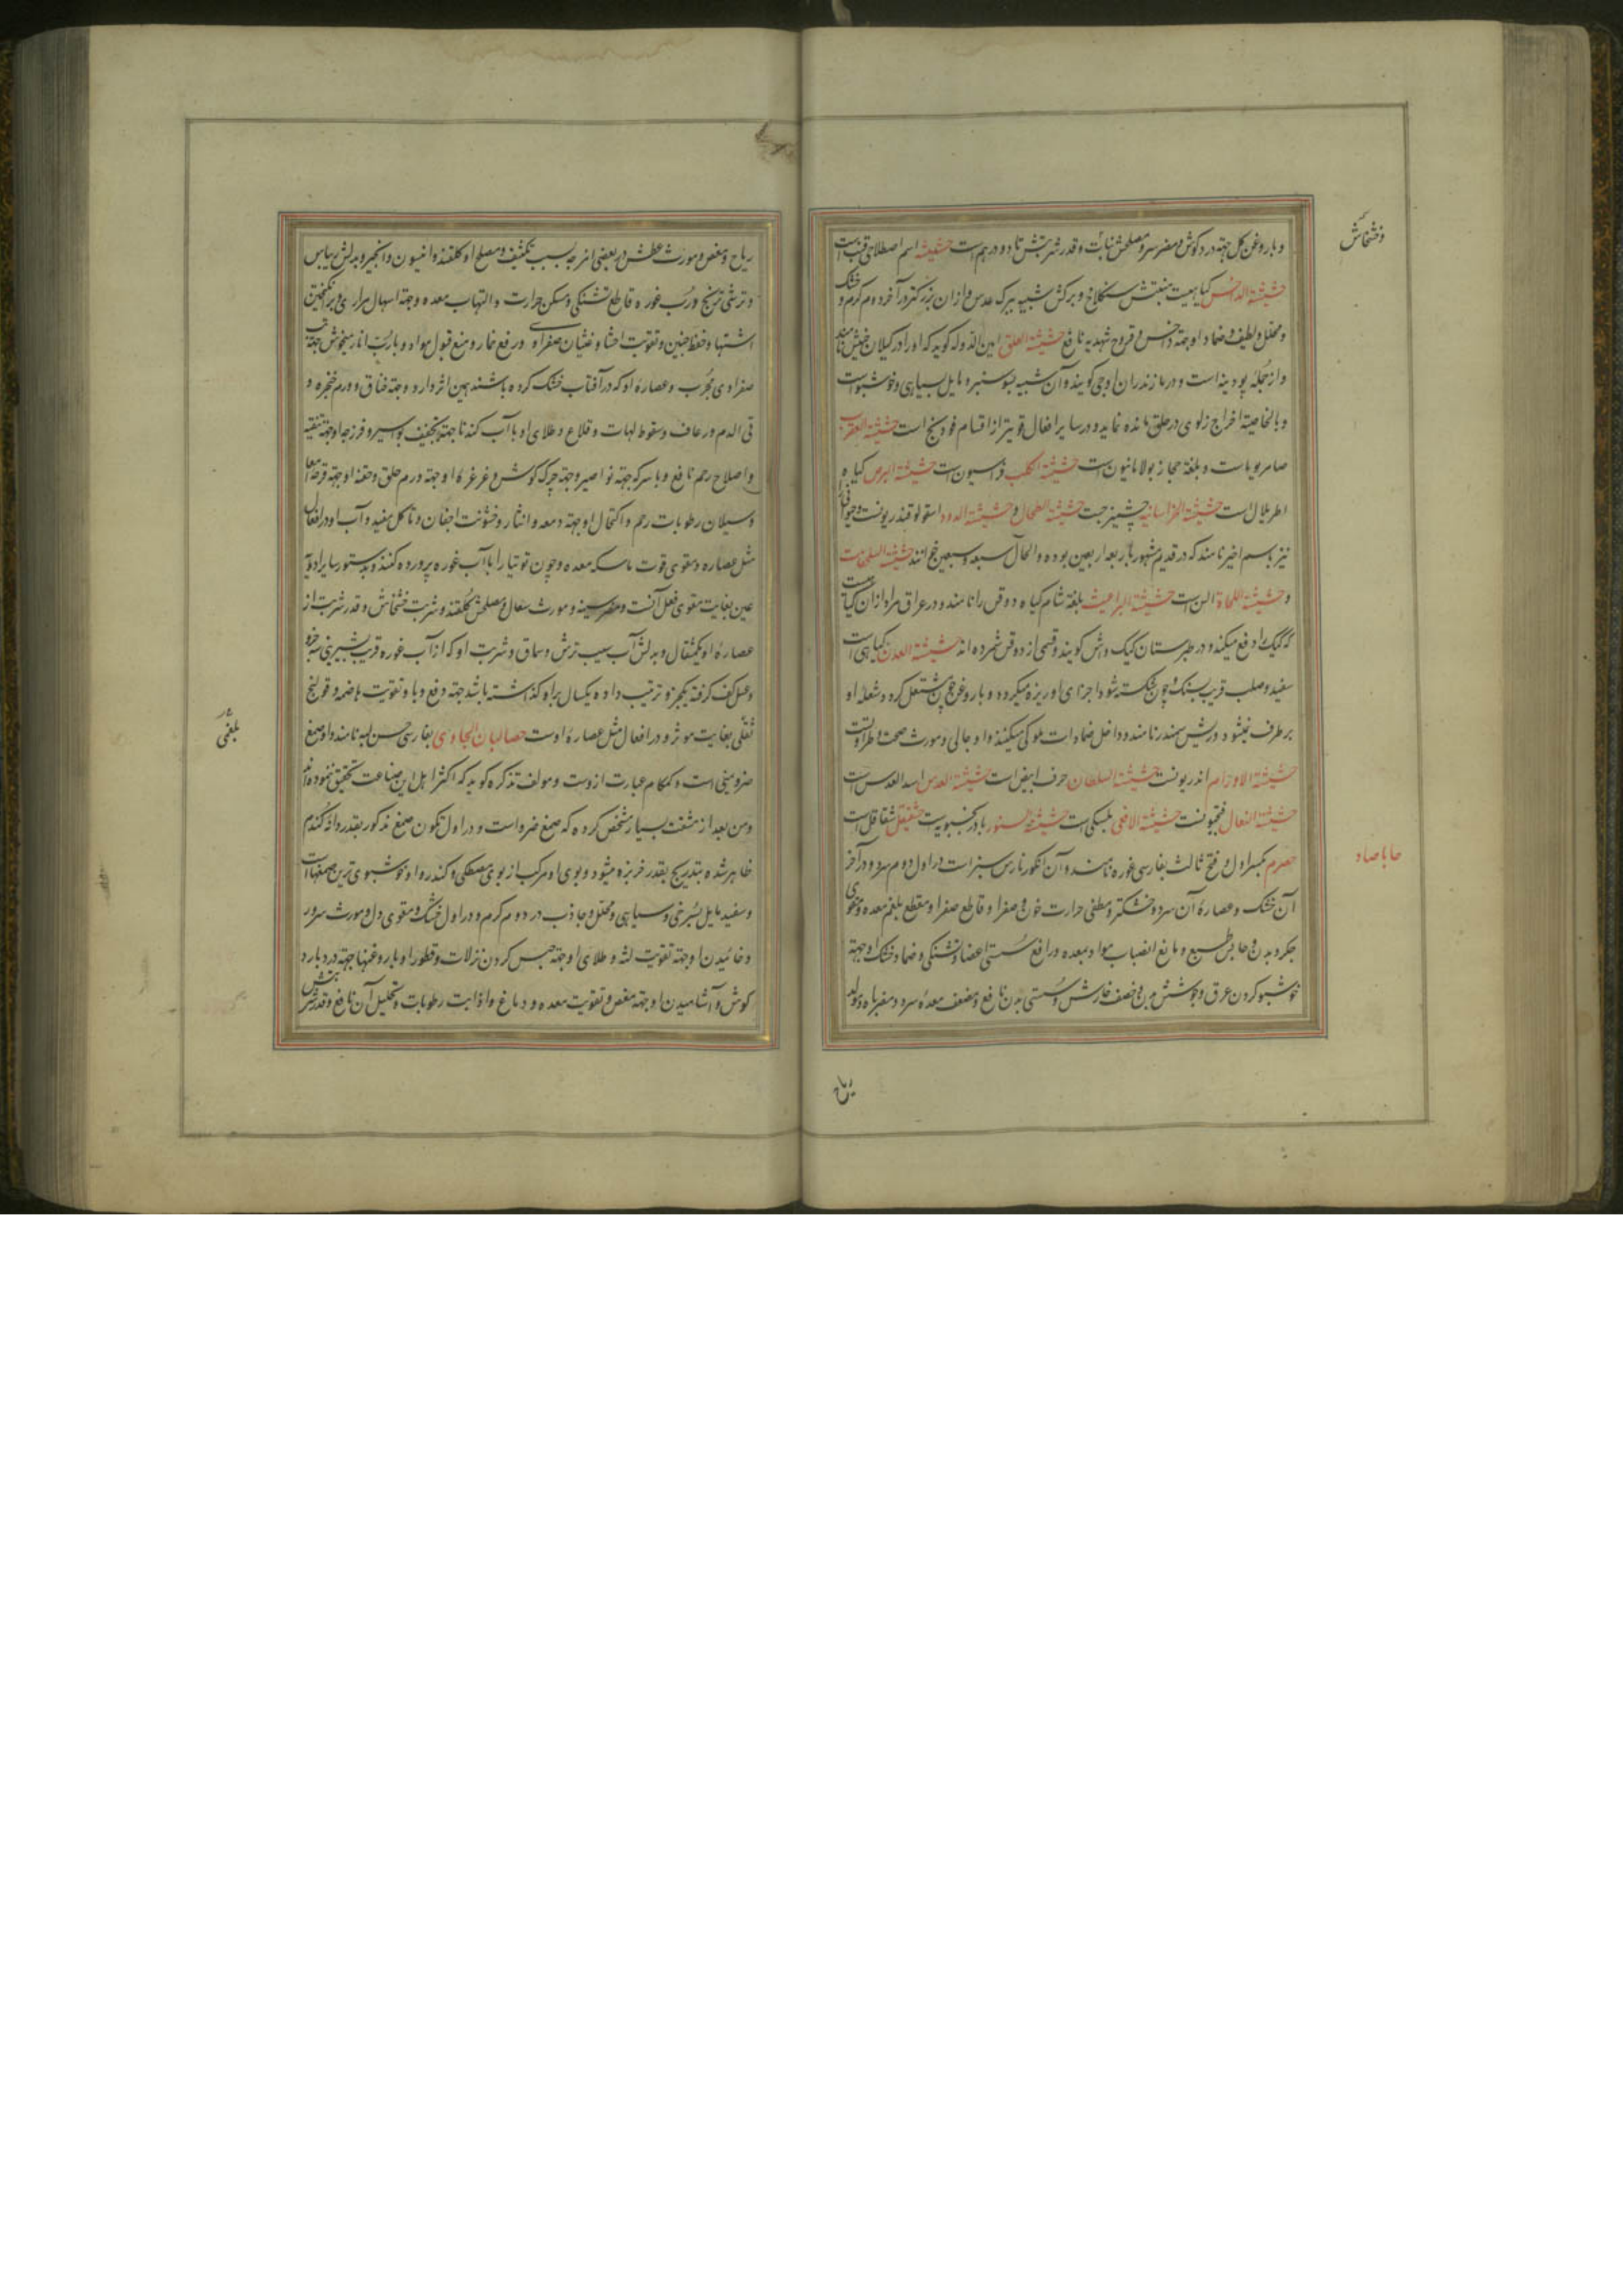 و با روغن کل جهته درد کوش و مضر سر و مصلحش نبات و قدر شربتش تا دو درهم است حشیشه اسم اصطلاحی قنب است
حشیشة الداحس کیاهیست منبتش سنکلاخ و برکش شبیه ببرک عدس و از ان بزرکتر در آخر دوم کرم و خشک
و محلل و لطیف و ضماد او جهته داحس و قروح شهدیه نافع حشیشة العلق امین الدوله کوید که او را در کیلان خلیش نامند
و از جمله پودینه است و در مازندران اوجی کویند و آن شبیه بسوسنبر و مایل بسیاهی و خوشبو است
و بالخاصیة اخراج زلوی در حلق مانده نماید و در سایر افعال قویتر از اقسام فودنج است حشیشة العقرب
صامریوما ست و بلغة حجاز بولامانیون است حشیشة الکلب فراسیون است حشیشة البرص کیاه
اطریلال است حشیشة الخراسانیه چشیزجت حشیشة الطحال و حشیشة الدود اسقولوقندریونست و
نیز باسم اخیر نامند که در قدیم مشهور باربعه اربعین بوده و الحال سبعه و سبعین خم انند حشیشة السلحفات
و حشیشة اللجاة السن است حشیشة البراغیث بلغة شام کیاه دوقس را نامند و در عراق مراد از ان کیاهیست
که کیک را دفع میکند و در طبرستان کیک واش کویند و قسمی از دوقس شمرده اند حشیشة العدن کیاهی است
سفید و صلب قریب بسنک و چون شکسته شود اجزای او ریزه میکردد و با روغن چون مشتعل کردد شعله او
بر طرف نمیشود و ریش سمندر نامند و داخل ضمادات ملوکی میکنند و او جالی و مورث صحت و طراوتست
حشیشة الاورام اندریونست حشیشة السلطان حرف ابیض است حشیشة العدس اسد العدس است
حشیشة النعال فنجیونست حشیشة الافعی بلبسکی است حشیشة السنور بادرنجبویه است حشیقل شقاقل است
حصرم بکسر اول و فتح ثالث بفارسی غوره نامند و آن انکور نارس سبز است در اول دوم سرد و در آخر
آن خشک و عصاره آن سرد و خشکتر و مطفی حرارت خون و صفرا و قاطع صفرا و مقطع بلغم معده و مقوی
جکر و بدن و حابس طبیع و مانع انصباب مواد بمعده و رافع سستی اعضا و تشنکی و ضماد خشک او جهته
خوشبو کردن عرق و جوشش بدن و خصف خارش و سستی بدن نافع و مضعف معده سرد و مضر باه و مولد
و خشخاش
حا با صاد
ریاح
ریاح و مغص و مورث عطش در بعضی امزجه بسبب تکثیف و مصلح او کلقند و انیسون و انجیر و بدلش ریباس
و ترشی ترنج و رب غوره قاطع تشنکی و مسکن حرارت و التهاب معده و جهته اسهال مراری و برانکیختن
اشتها و حفظ جنین و تقویت احشا و غثیان صفراوی و رفع خمار و منع قبول مواد و با رب انار میخوش جهته تب
صفراوی مجرب و عصاره او که در آفتاب خشک کرده باشند همین اثر دارد و جهته خناق و ورم حنجره و
قی الدم و رعاف و سقوط لهات و قلاع و طلای او با آب کندنا جهته تجفیف بواسیر و فرزجه او جهته تنقیه
و اصلاح رحم نافع و با سرکه جهته نواصیر و جهته چرک کوش و غرغره او جهته ورم حلق و حقنه او جهته قرحه امعا
و سیلان رطوبات رحم و اکتحال او جهته دمعه و انتثار و خشونت اجفان و تاکل مفید و آب او در افعال
مثل عصاره و مقوی قوت ماسکه معده و چون توتیا را با آب غوره پرورده کنند و بدستور سایر ادویه
عین بغایت مقوی فعل آنست و مضر سینه و مورث سعال و مصلحش کلقند و شربت خشخاش و قدر شربت از
عصاره او یکمثقال و بدلش آب سیب ترش و سماق و شربت او که از آب غوره قریب بشیرینی سه جزو
و عسل کف کرفته یکجزو ترتیب داده یکسال بر او کذاشته باشد جهته دفع وبا و تقویت هاضمه و قولنج
ثفلی بغایت موثر و در افعال مثل عصاره اوست حصالبان الجاوی بفارسی حسن لبه نامند و او صمغ
ضرو یمنی است و کمکام عبارت از وست و مولف تذکره کوید که اکثر اهل این صناعت تحقیق ننموده اند
و من بعد از مشقت بسیار مشخص کرده که صمغ ضرو است و در اول تکون صمغ مذکور بقدر دانه کندم
ظاهر شده بتدریج بقدر خربزه میشود و بوی او مرکب از بوی مصطکی و کندر و او خوشبوی ترین صمغهاست
و سفید مایل بسرخی و سیاهی و محلل و جاذب در دوم کرم و در اول خشک و مقوی دل و مورث سرور
و خائیدن او جهته تقویت لثه و طلای او جهته حبس کردن نزلات و قطور او با روغنها جهته درد بارد
کوش و آشامیدن او جهته مغص و تقویت معده و دماغ و اذابت رطوبات و تحلیل آن نافع و قدر شربتش
بلغمی